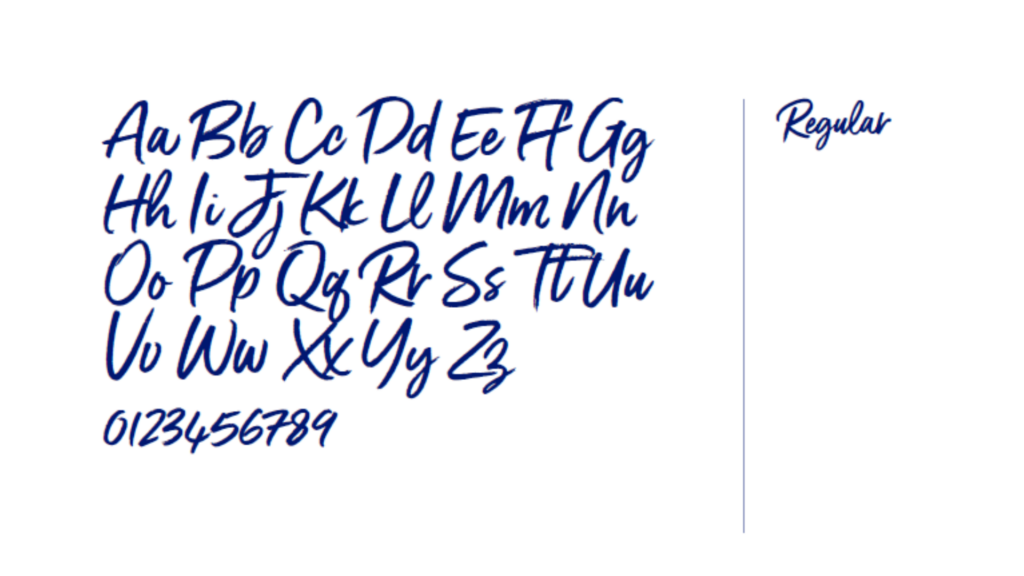 Aa Bb Cc Dd Ee Ff Gg
Hh Ii Jj Kk Ll Mm Nn
Oo Pp Qq Rr Ss Tt Uu
Vv Ww Xx Yy Zz
0123456789
Regular